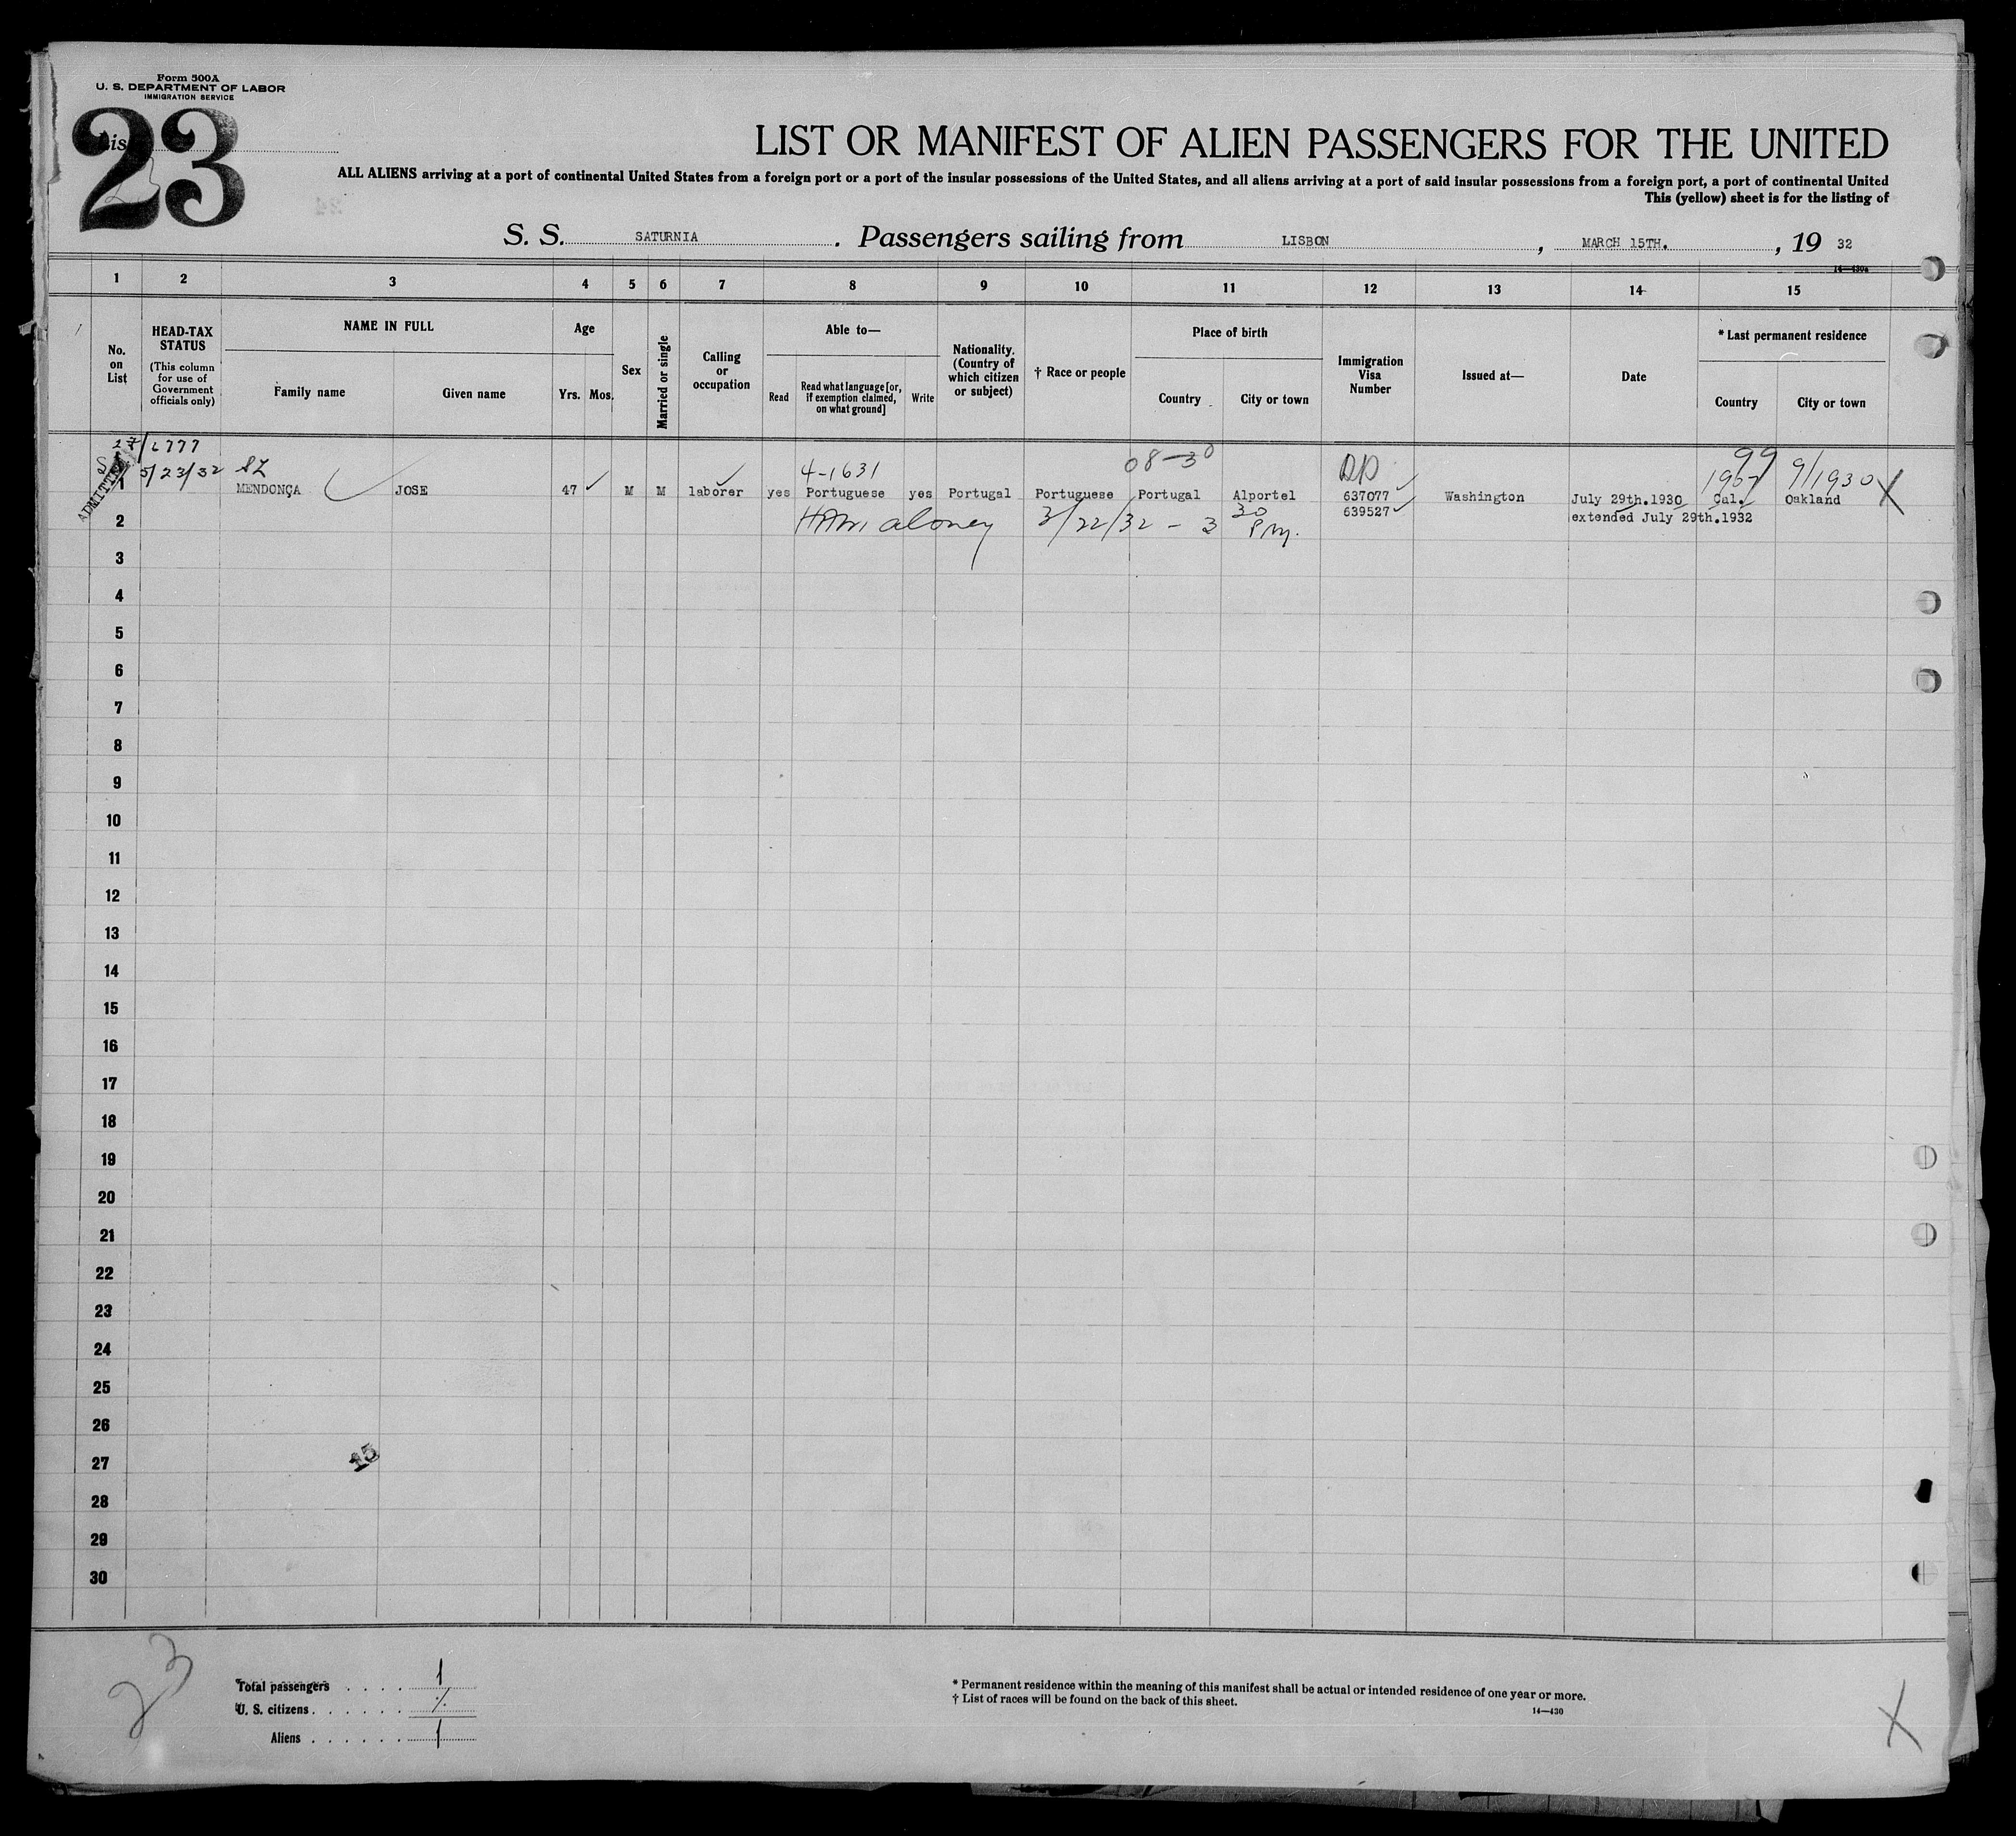 Form 500A
U. S. DEPARTMENT OF LABOR
IMMIGRATION SERVICE
23
LIST OR MANIFEST OF ALIEN PASSENGERS FOR THE UNITED
ALL ALIENS arriving at a port of continental United States from a foreign port or a port of the insular possessions of the United States, and all aliens arriving at a port of said insular possessions from a foreign port, a port of continental United
This (yellow) sheet is for the listing of
S. S. SATURNIA. Passengers sailing from LISBON, MARCH 15TH., 19 32
14—430a
1 2 3 4 5 6 7 8 9 10 11 12 13 14 15
No. on List
HEAD-TAX STATUS
(This column for use of Government officials only)
NAME IN FULL
Family name
Given name
Age
Yrs. Mos.
Sex
Married or single
Calling or occupation
Able to—
Read
Read what language [or, if exemption claimed, on what ground]
Write
Nationality. (Country of which citizen or subject)
† Race or people
Place of birth
Country
City or town
Immigration Visa Number
Issued at—
Date
* Last permanent residence
Country
City or town
ADMITTED
5/23/32
4-1631
08-30
99
9/1930 X
1 MENDONÇA JOSE 47 M M laborer yes Portuguese yes Portugal Portuguese Portugal Alportel 637077 Washington July 29th.1930 Cal. Oakland
2 3/22/32 - 3 30 PM. 639527 extended July 29th.1932
3
4
5
6
7
8
9
10
11
12
13
14
15
16
17
18
19
20
21
22
23
24
25
26
27
28
29
30
15
23
Total passengers 1
U. S. citizens
Aliens 1
* Permanent residence within the meaning of this manifest shall be actual or intended residence of one year or more.
† List of races will be found on the back of this sheet.
14—430
X